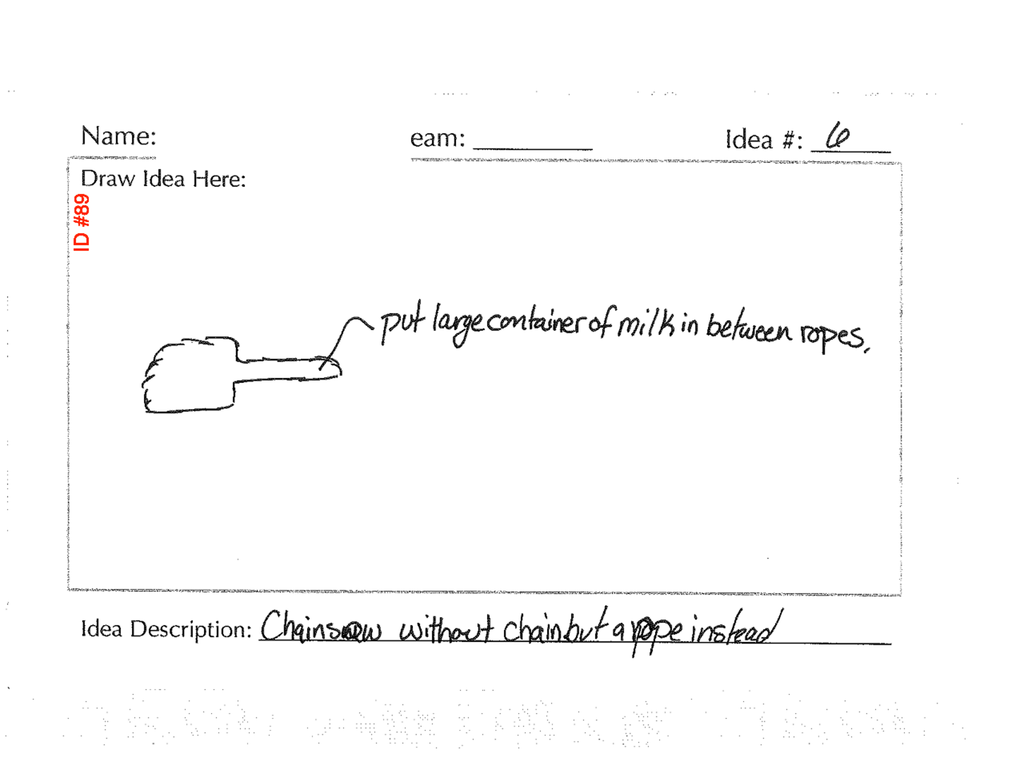 Name: eam: Idea #: 6
Draw Idea Here:
ID #89
put large container of milk in between ropes.
Idea Description: Chainsaw without chain but a rope instead